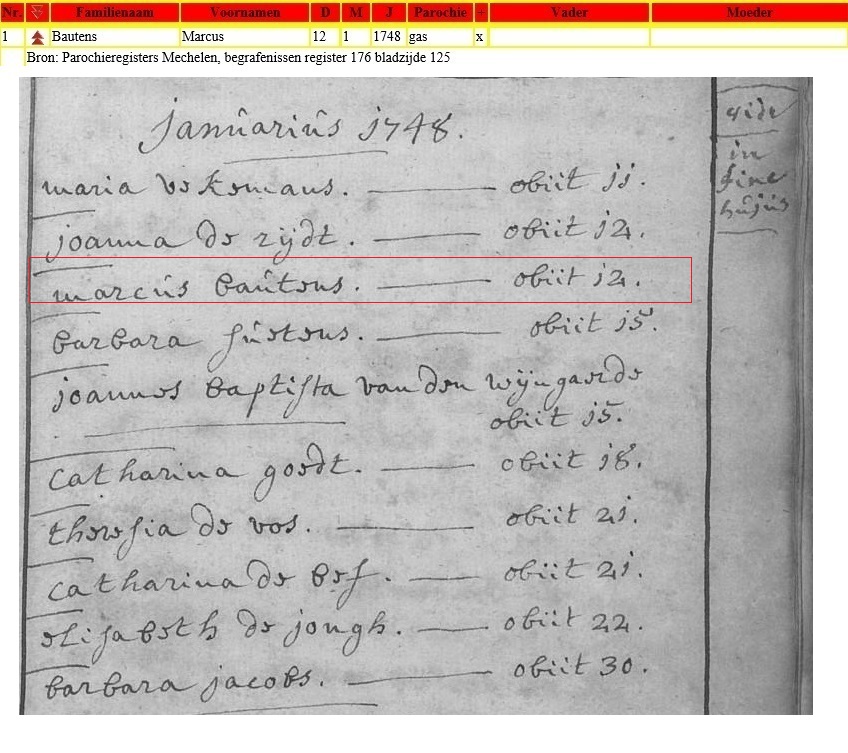 Nr. Familienaam Voornamen D M J Parochie + Vader Moeder
1 Bautens Marcus 12 1 1748 gas x
Bron: Parochieregisters Mechelen, begrafenissen register 176 bladzijde 125
januariûs 1748.
vide
in
fine
hujus
maria vekemans. obiit 11.
joanna de rijdt. obiit 12.
marcûs baûtens. obiit 12.
barbara hûetens. obiit 15.
joannes baptista van den wijngaerde
obiit 15.
catharina goedt. obiit 18.
theresia de vos. obiit 21.
catharina de bef. obiit 21.
elisabeth de jongh. obiit 22.
barbara jacobs. obiit 30.